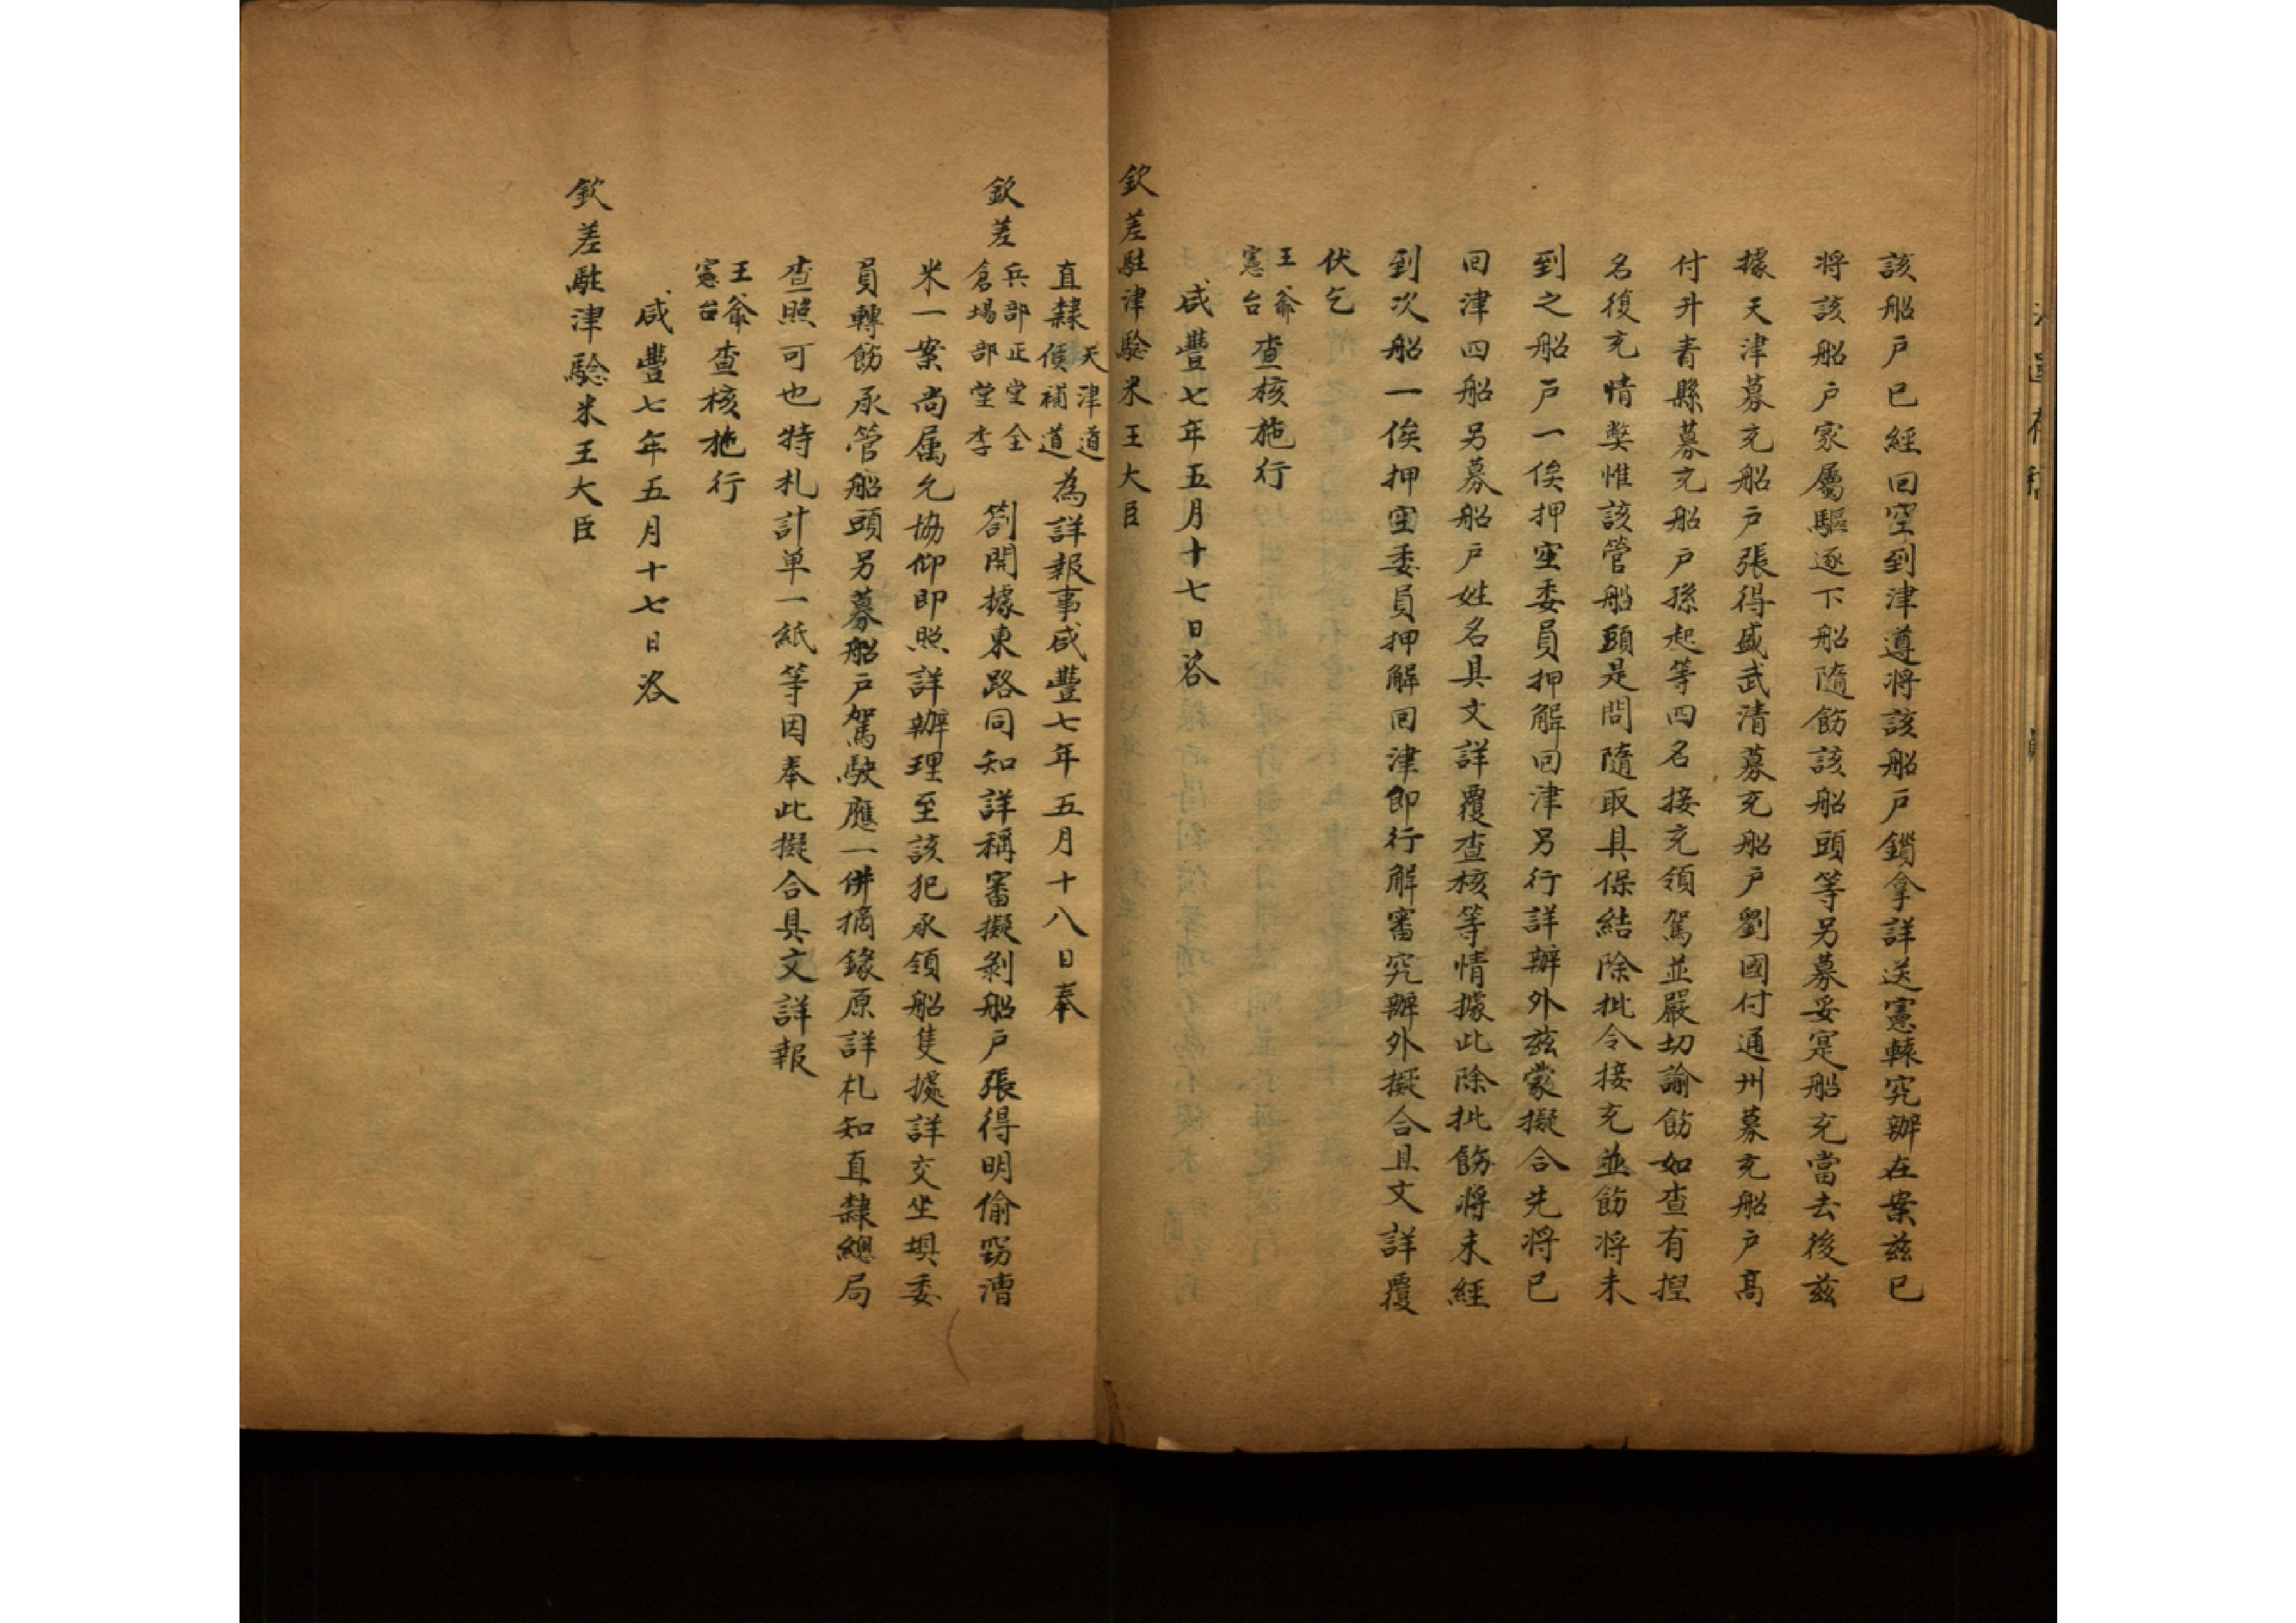 該船戶已經回空到津遵將該船戶鎖拿詳送憲轅究辦在案兹已
將該船戶家屬驅逐下船隨飭該船頭等另募妥寔船充當去後兹
據天津募充船戶張得盛武清募充船戶劉國付通州募充船戶高
付升青縣募充船戶孫起等四名接充領駕並嚴切諭飭如查有捏
名復充情獘惟該管船頭是問隨取具保結除批令接充並飭將未
到之船戶一俟押空委員押解回津另行詳辦外兹蒙擬合先將已
回津四船另募船戶姓名具文詳覆查核等情據此除批飭將未經
到次船一俟押空委員押解回津卽行解審究辦外擬合具文詳覆
伏乞
王爺
憲台
查核施行
咸豐七年五月十七日咨
欽差駐津驗米王大臣
直隸
天津道
候補道
為詳報事咸豐七年五月十八日奉
欽差
兵部正堂全
倉場部堂李
劄開據東路同知詳稱審擬剝船戶張得明偷窃漕
米一案尚属允協仰即照詳辦理至該犯承領船隻據詳交坐垻委
員轉飭承管船頭另募船戶駕駛應一併摘錄原詳札知直隸總局
查照可也特札計单一紙等因奉此擬合具文詳報
王爺
憲台
查核施行
咸豐七年五月十七日咨
欽差駐津驗米王大臣